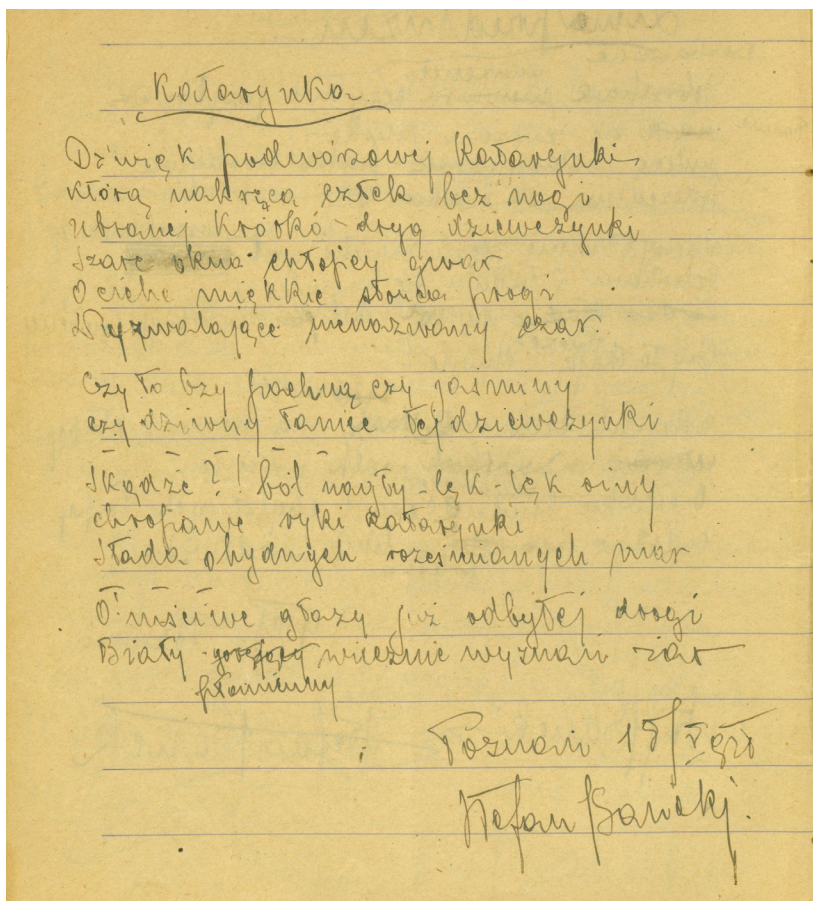 Katarynka
Dźwięk podwórzowej Katarynki
którą nakręca człek bez nogi
Ubranej Krótko - dryg dziewczynki
Szare okna chłopcy gwar
O ciche miękkie słońca progi
Wyzwalające nienazwany czar.
Czy to bzy pachną czy jaśminy
czy dziwny taniec tej dziewczynki
Skądże?! ból nagły - lęk - lęk siny
chropawe ryki katarynki
Stada ohydnych roześmianych mar
O! mściwe głazy już odbytej drogi
Biały gorejący wiecznie wyznań żar
płomienny
Poznań 15/V
Stefan Banicki.